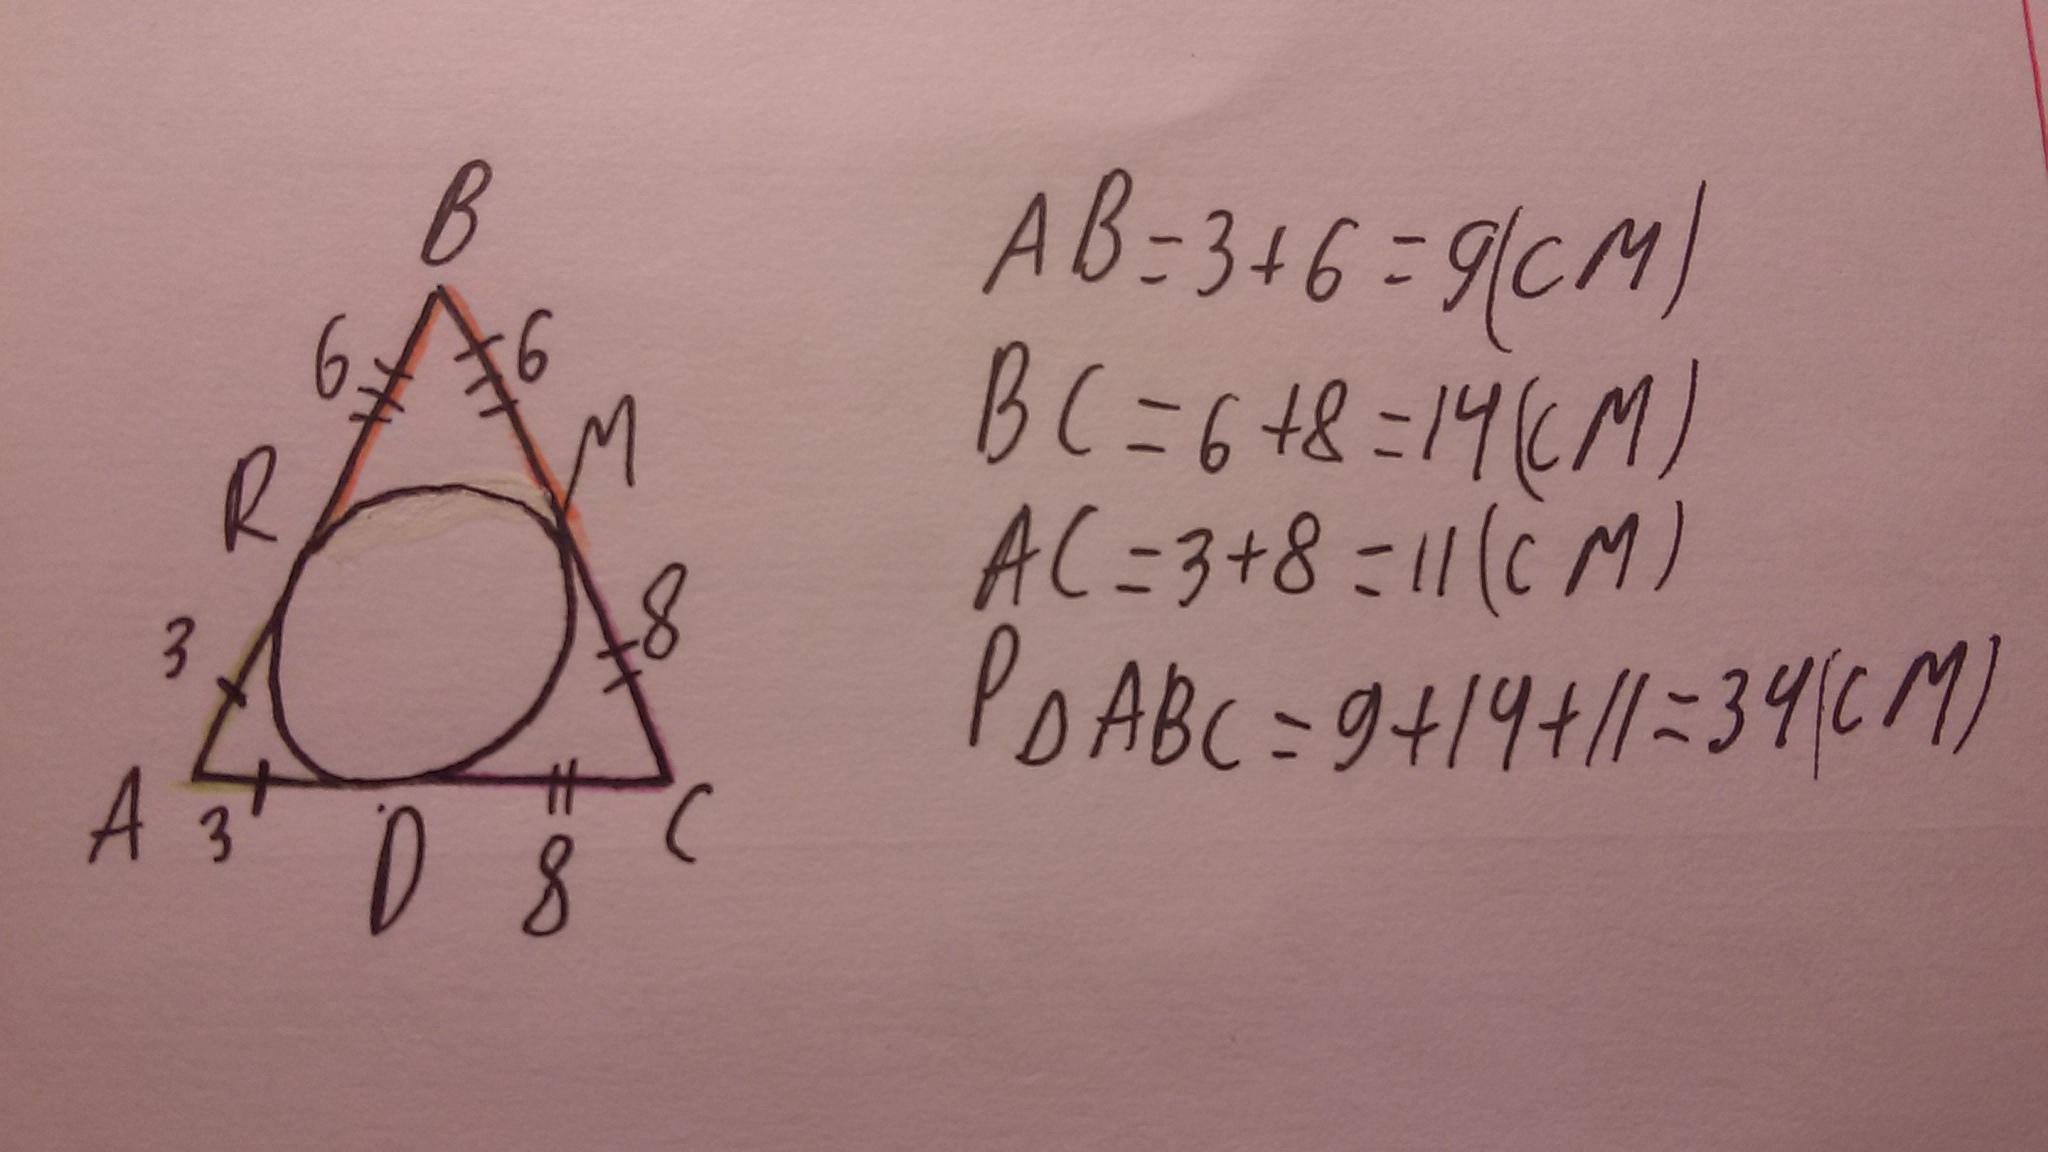 B
6 6
R M
3 8
A 3 D 8 C
AB=3+6=9(см)
BC=6+8=14(см)
AC=3+8=11(см)
P△ABC=9+14+11=34(см)